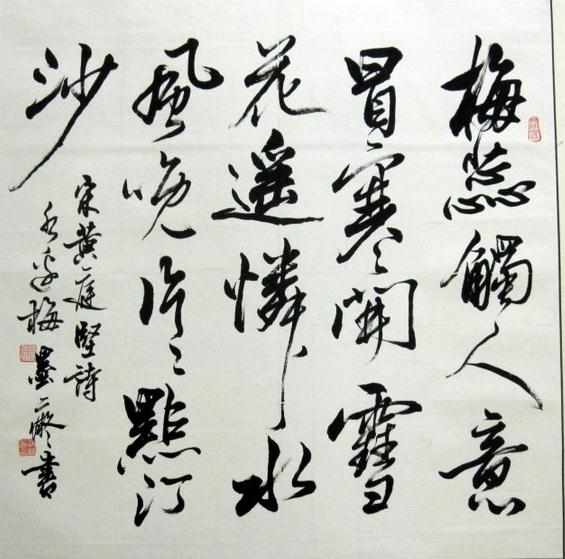 梅蕊觸人意
冒寒開雪
花遙憐水
風晚片々點汀
沙
宋黃庭堅詩
水邊梅 墨 書